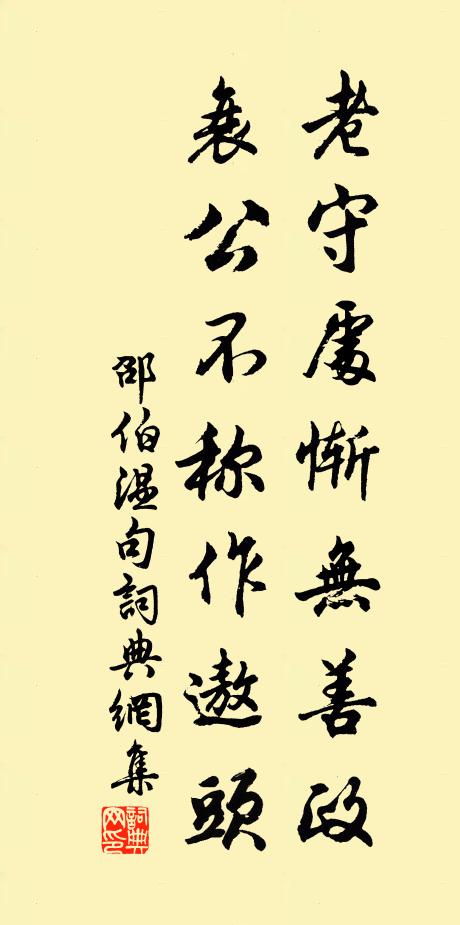 老守處慚無善政
衰公不称作遨頭
邵伯温句詞典網集
詞典网印